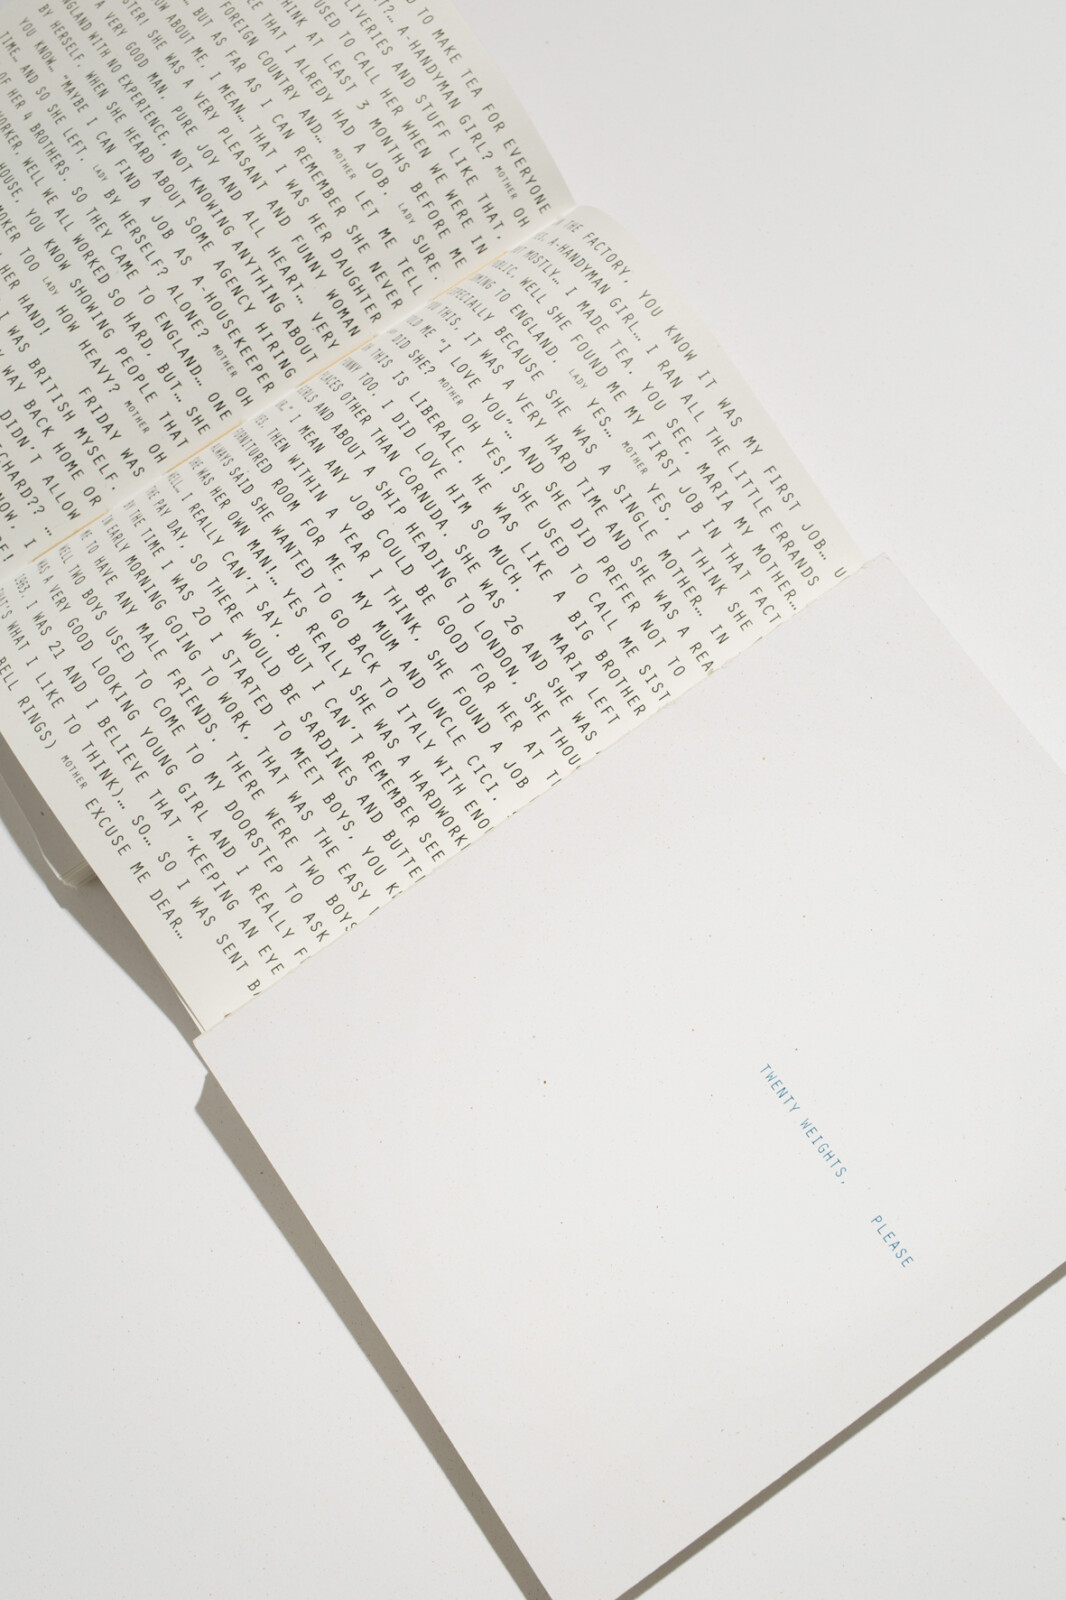 TO MAKE TEA FOR EVERYONE
A-HANDYMAN GIRL? MOTHER OH
LIVERIES AND STUFF LIKE THAT,
USED TO CALL HER WHEN WE WERE IN
HINK AT LEAST 3 MONTHS BEFORE ME
CE THAT I ALREDY HAD A JOB. LADY SURE.
FOREIGN COUNTRY AND… MOTHER LET ME TELL
… BUT AS FAR AS I CAN REMEMBER SHE NEVER
OW ABOUT ME, I MEAN… THAT I WAS HER DAUGHTER
STER! SHE WAS A VERY PLEASANT AND FUNNY WOMAN
A VERY GOOD MAN, PURE JOY AND ALL HEART… VERY
NGLAND WITH NO EXPERIENCE, NOT KNOWING ANYTHING ABOUT
BY HERSELF, WHEN SHE HEARD ABOUT SOME AGENCY HIRING
YOU KNOW… "MAYBE I CAN FIND A JOB AS A-HOUSEKEEPER
TIME… AND SO SHE LEFT. LADY BY HERSELF? ALONE? MOTHER OH
OF HER 4 BROTHERS, SO THEY CAME TO ENGLAND… ONE
ORKER, WELL WE ALL WORKED SO HARD, BUT… SHE
HOUSE, YOU KNOW SHOWING PEOPLE THAT
MOKER TOO LADY HOW HEAVY? MOTHER OH
HER HAND! FRIDAY WAS
I WAS BRITISH MYSELF,
WAY BACK HOME OR
DIDN'T ALLOW
CHARD?? …
NOW, I
THE FACTORY, YOU KNOW IT WAS MY FIRST JOB… U
A-HANDYMAN GIRL… I RAN ALL THE LITTLE ERRANDS
MOSTLY… I MADE TEA. YOU SEE, MARIA MY MOTHER…
WELL SHE FOUND ME MY FIRST JOB IN THAT FACT
ING TO ENGLAND. LADY YES… MOTHER YES, I THINK SHE
SPECIALLY BECAUSE SHE WAS A SINGLE MOTHER… IN
THIS, IT WAS A VERY HARD TIME AND SHE WAS A REA
ME "I LOVE YOU"… AND SHE DID PREFER NOT TO
DID SHE? MOTHER OH YES! SHE USED TO CALL ME SIST
THIS IS LIBERALE, HE WAS LIKE A BIG BROTHER
FUNNY TOO, I DID LOVE HIM SO MUCH. MARIA LEFT
PLACES OTHER THAN CORNUDA. SHE WAS 26 AND SHE WAS
GIRLS AND ABOUT A SHIP HEADING TO LONDON, SHE THOU
I MEAN ANY JOB COULD BE GOOD FOR HER AT T
THEN WITHIN A YEAR I THINK, SHE FOUND A JOB
FURNITURED ROOM FOR ME, MY MUM AND UNCLE CICI.
ALWAYS SAID SHE WANTED TO GO BACK TO ITALY WITH ENO
SHE WAS HER OWN MAN!… YES REALLY SHE WAS A HARDWORK
WELL… I REALLY CAN'T SAY, BUT I CAN'T REMEMBER SEE
PAY DAY, SO THERE WOULD BE SARDINES AND BUTTE
BY THE TIME I WAS 20 I STARTED TO MEET BOYS, YOU K
IN EARLY MORNING GOING TO WORK, THAT WAS THE EASY
ME TO HAVE ANY MALE FRIENDS. THERE WERE TWO BOYS
WELL TWO BOYS USED TO COME TO MY DOORSTEP TO ASK
WAS A VERY GOOD LOOKING YOUNG GIRL AND I REALLY F
1963, I WAS 21 AND I BELIEVE THAT "KEEPING AN EYE
THAT'S WHAT I LIKE TO THINK)… SO… SO I WAS SENT B
BELL RINGS) MOTHER EXCUSE ME DEAR…
TWENTY WEIGHTS, PLEASE